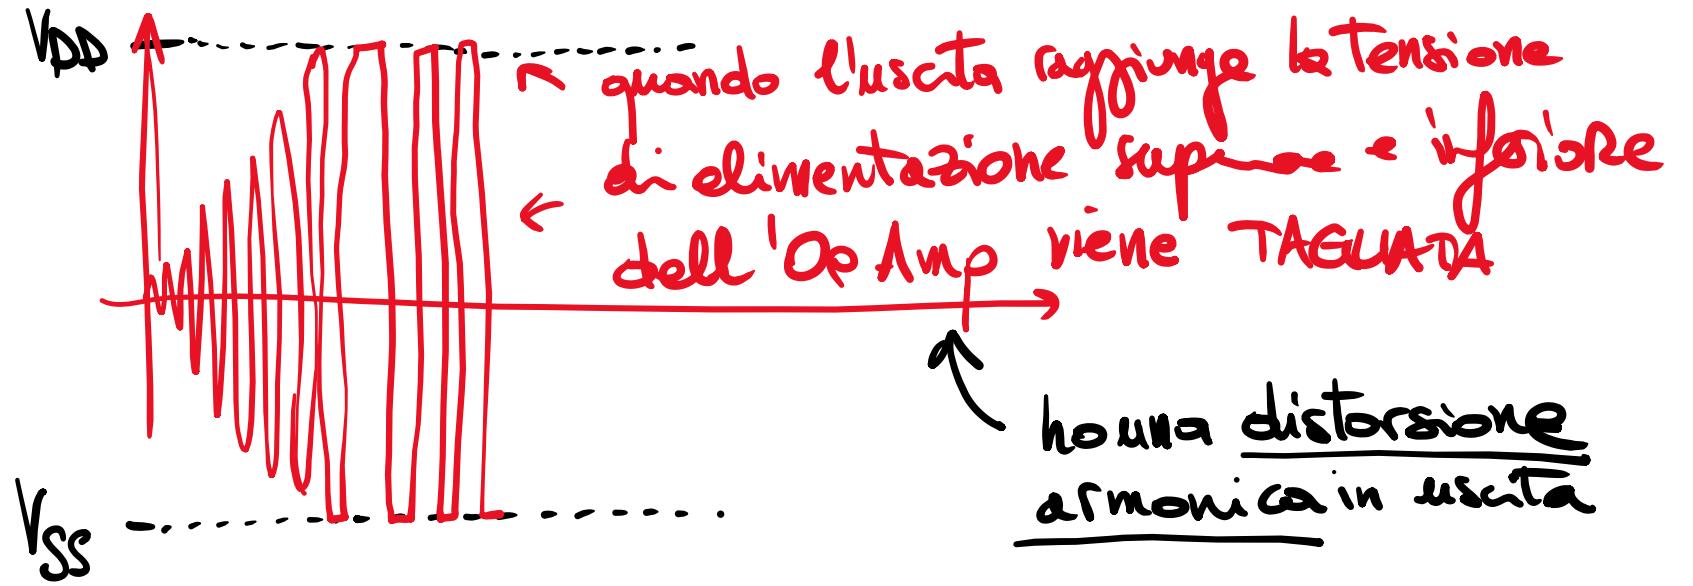 VDD
quando l'uscita raggiunge la tensione
di alimentazione sup e inferiore
dell'Op Amp viene TAGLIATA
ho una distorsione
armonica in uscita
VSS